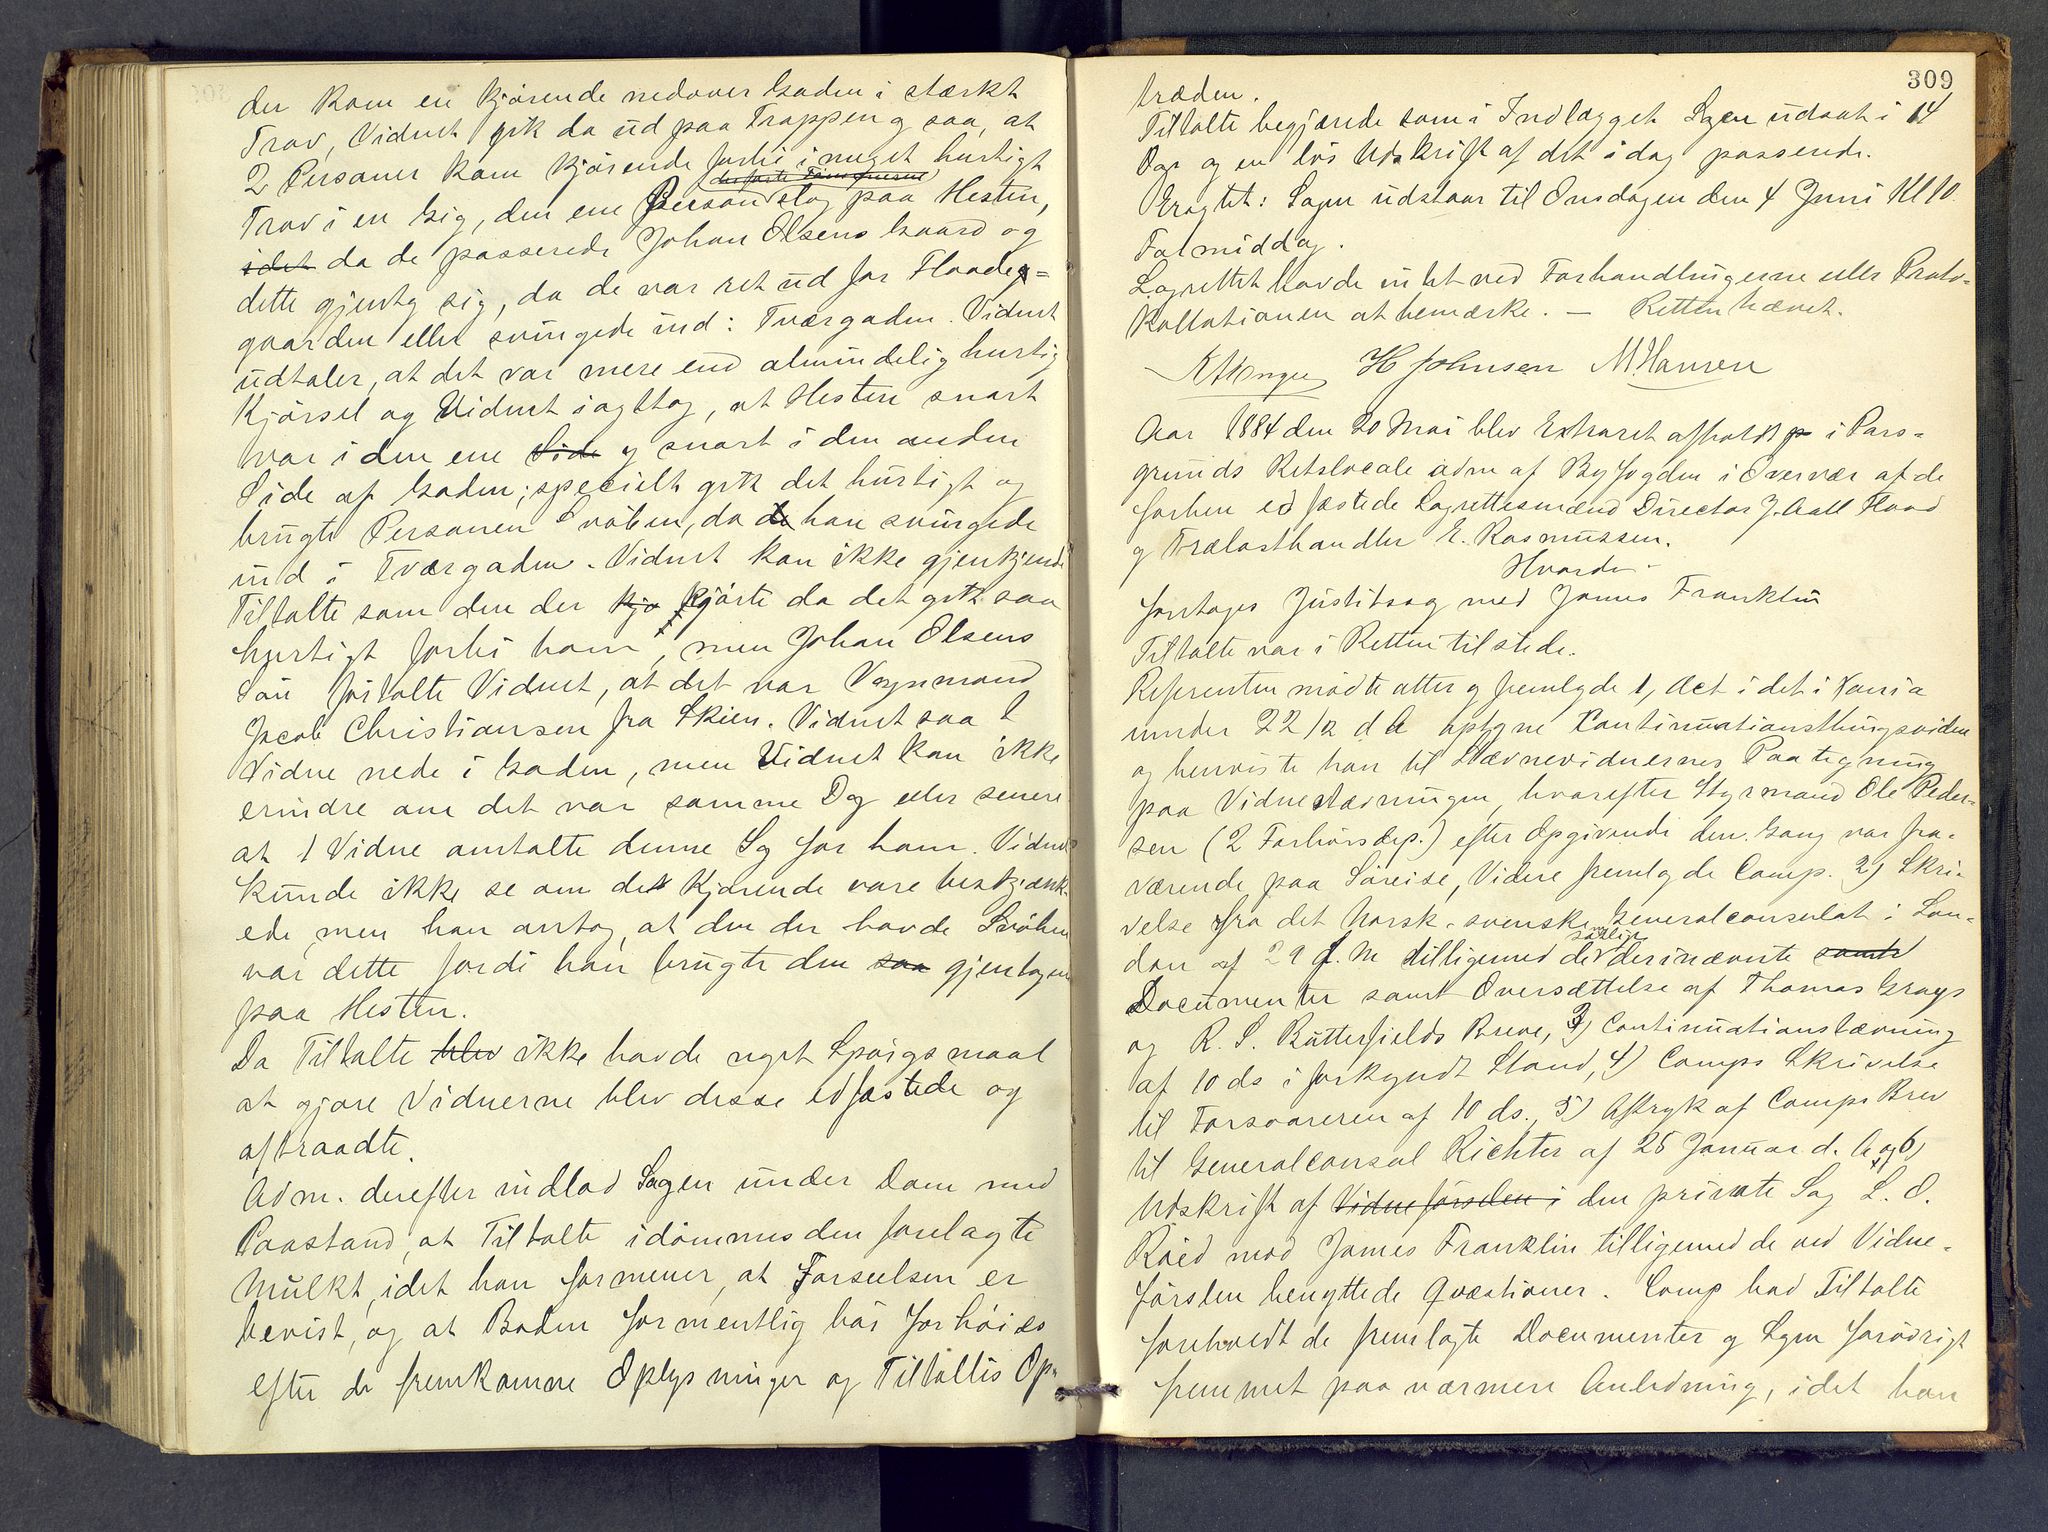 der kom en kjørende nedover Gaden i stærkt
Trav, Vidnet gik da ud paa Trappen og saa, at
2 Personer kom kjørende forbi i meget hurtigt
der førte Tømmerne
Trav i en Gig, den ene Person slog paa Hesten,
idet da de passerede Johan Olsens Gaard og
dette gjentog sig, da de var ret ud for Floode-
gaarden eller svingede ind i Tværgaden. Vidnet
udtaler, at det var mere end almindelig hurtig
Kjørsel og Vidnet iagttog, at Hesten snart
var i den ene Side og snart i den anden
Side af Gaden; specielt gik det hurtigt og
brugte Personen Svøben, da de han svingede
ind i Tværgaden. Vidnet kan ikke gjenkjende
Tiltalte som den der kjø kjørte da det gik saa
hurtigt forbi ham, men Johan Olsens
Søn fortalte Vidnet, at det var Vognmand
Jacob Christiansen fra Skien. Vidnet saa 1
Vidne nede i Gaden, men Vidnet kan ikke
erindre om det var samme Dag eller senere
at 1 Vidne omtalte denne Sag for ham. Vidnet
kunde ikke se om de Kjørende vare beskjænk-
ede, men han antog, at den der havde Svøben
var dette fordi han brugte den saa gjentagne
paa Hesten.
Da Tiltalte blev ikke havde noget Spørgsmaal
at gjøre Vidnerne blev disse edfæstede og
aftraadte.
Adm. derefter indlod Sagen under Dom med
Paastand, at Tiltalte idømmes den forelagte
Mulkt, idet han formener, at Forseelsen er
bevist, og at Boden formentlig bør forhøies
efter de fremkomne Oplysninger og Tiltaltes Op-
309
træden.
Tiltalte begjærede som i Indlægget Sagen udsat i 14
Dage og en løs Udskrift af det idag passerede.
Eragtet: Sagen udstaar til Onsdagen den 4 Juni Kl 10
Formiddag.
Lagrettet havde intet ved Forhandlingerne eller Proto-
kollationen at bemærke. — Retten hævet.
H Johnsen M. Hansen
Aar 1884 den 20 Mai blev Extraret afholdt p i Pors-
grunds Retslocale adm af Byfogden i Overvær af de
forhen edfæstede Lagrettesmænd Director J. Aall Flood
og Trælasthandler E. Rasmussen.
Hvorda-
foretoges Justitssag mod James Franklin
Tiltalte var i Retten tilstede.
Referenten mødte atter og fremlagde 1, Act i det i Vania
under 22/2 d A optagne Continuationsthingsvidne
og henviste han til Stævnevidnernes Paategning
paa Vidnestævningen, hvorefter Styrmand Ole Peder-
sen (2 Forhørsdep.) efter Opgivende den Gang var fra-
værende paa Søreise, Videre fremlagde Comp. 2) Skri-
velse fra det Norsk-svenske Generalconsulat i Lon-
særlig
don af 29 f. M tilligemed de derinævnte samt
Documenter samt Oversættelse af Thomas Grays
og R. S. Butterfields Breve, 3) Continuationstævning
af 10 ds i forkyndt Stand, 4) Comps Skrivelse
til Forsvareren af 10 ds., 5) Aftryk af Comps Brev
til Generalconsul Richter af 25 Januar d. A og 6)
Udskrift af Vidneførselen i den private Sag L. O.
Röed mod James Franklin tilligemed de ved Vidne-
førslen benyttede Qvæstioner. Comp bad Tiltalte
foreholdt de fremlagte Documenter og Sagen forøvrigt
fremmet paa nærmere Anledning, idet han